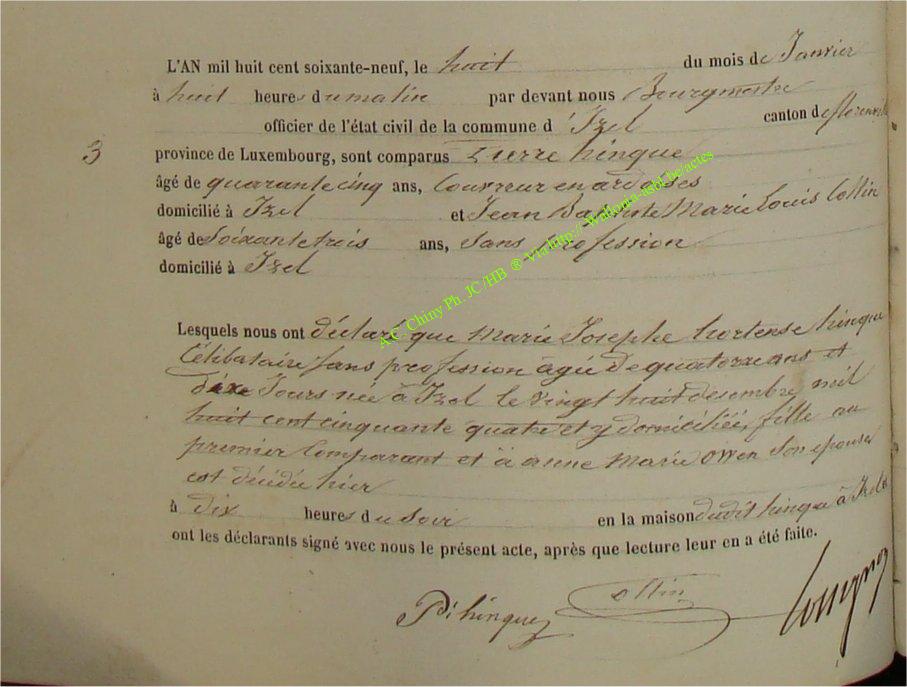 L'AN mil huit cent soixante-neuf, le huit du mois de Janvier
à huit heures du matin par devant nous Bourgmestre
officier de l'état civil de la commune d'Izel canton de florenville
3 province de Luxembourg, sont comparus Pierre hinque
âgé de quarante cinq ans, Couvreur en ardoises
domicilié à Izel et Jean Baptiste Marie Louis Collin
âgé de Soixante trois ans, Sans profession
domicilié à Izel
Lesquels nous ont déclaré que Marie Josephe hortense hinque
Célibataire sans profession âgée de quatorze ans et
dix Jours née à Izel le vingt huit desembre mil
huit cent cinquante quatre et y domiciliée, fille au
premier Comparant et à anne Marie Owen Son epouse
est décédée hier
à dix heures du Soir en la maison dudit hinque à Izel
ont les déclarants signé avec nous le présent acte, après que lecture leur en a été faite.
P: hinque Collin
A.C. Chiny Ph. JC/HB ® Via http://Wallonia-asbl.be/actes